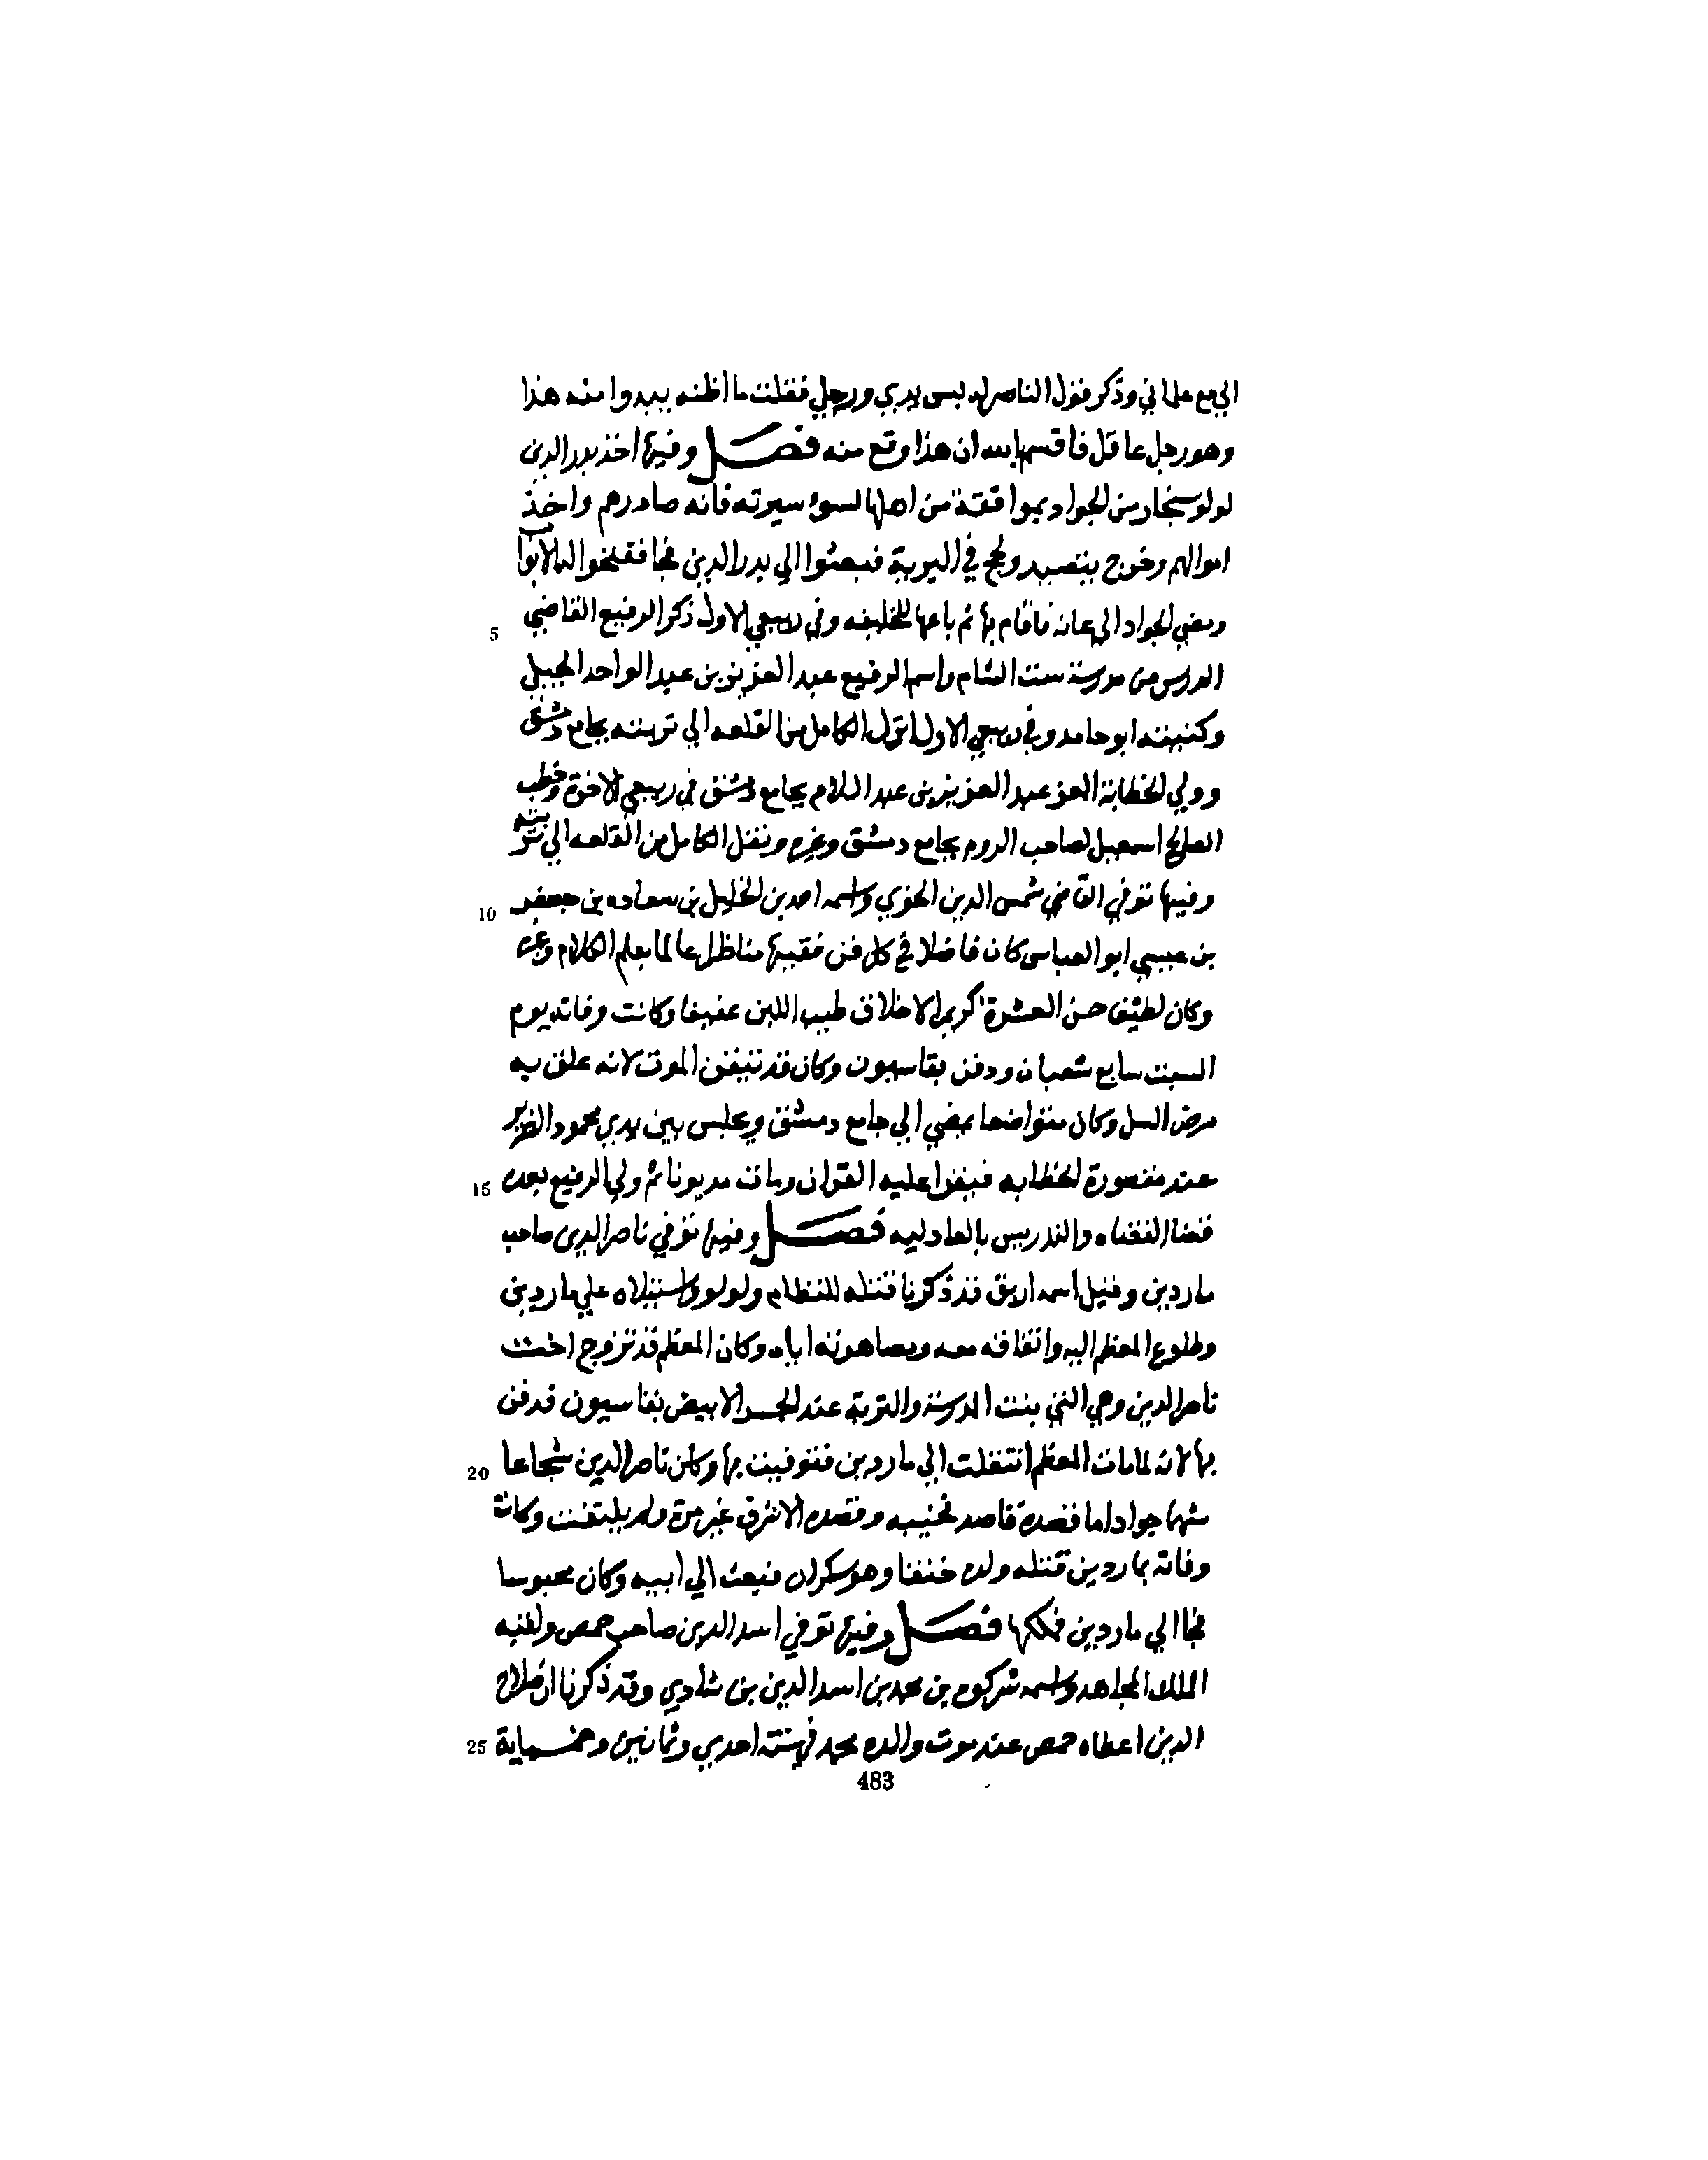 الي مع علماني وذكر قول الناصر له ليس يدي ورجلي فقلت ما اظنه يبدوا منه هذا
وهو رجل عاقل فاقسم بالله ان هذا وقع منه فصل وفيها اخذ بدر الدين
لولو سنجار من الجواد بموافقة من اهلها لسوء سيرته فانه صادرهم واخذ
اموالهم وخرج يتصيد ولج في البرية فبعثوا الي بدر الدين فجا ففتحوا له الابواب
ومضي الجواد الي عانه فاقام بها ثم باعها للخليفه وفي ربيع الاول ذكر الرفيع القاضي
5
الدرس من مدرسة ست الشام واسم الرفيع عبد العزيز بن عبد الواحد الجيلي
وكنيته ابو حامد وفي ربيع الاول انزل الكامل من القلعه الي تربته بجامع دمشق
وولي الخطابة العز عبد العزيز بن عبد السلام بجامع دمشق في ربيع الاخرة وخطب
الصالح اسمعيل لصاحب الروم بجامع دمشق وغيره ونقل الكامل من القلعه الي تربته
وفيها توفي القاضي شمس الدين الخوي واسمه احمد بن الخليل بن سعاده بن جعفر
10
بن عيسي ابو العباس كان فاضلا في كل فن فقيها مناظرا عالما بعلم الكلام وغيره
وكان لطيفا حسن العشرة كريم الاخلاق طيب اللين عفيفا وكانت وفاته يوم
السبت سابع شعبان ودفن بقاسيون وكان قد تيقن الموت لانه علق به
مرض السل وكان متواضعا يمضي الي جامع دمشق ويجلس بين يدي محمود الضرير
عند مقصورة الخطابه فيقرا عليه القران ومات مديونا ثم ولي الرفيع بعده
15
قضا القضاه والتدريس بالعادليه فصل وفيها توفي ناصر الدين صاحب
ماردين وقيل اسمه ارتق قد ذكرنا قتله للنظام ولولو واستيلاه علي ماردين
وطلوع المعظم اليه واتفاقه معه ومصاهرته اياه وكان المعظم قد تزوج اخت
ناصر الدين وهي التي بنت المدرسة والتربة عند الجسر الابيض بقاسيون فدفن
بها لانه لما مات المعظم انتقلت الي ماردين فتوفيت بها وكان ناصر الدين شجاعا
20
شهما جوادا ما قصده قاصد فخيبه وقصده الاشرف غير مرة ولم يلتفت وكانت
وفاته بماردين قتله ولده خنقا وهو سكران فبعث الي ابيه وكان محبوسا
فجا الي ماردين فملكها فصل وفيها توفي اسد الدين صاحب حمص ولقبه
الملك المجاهد واسمه شركوه بن محمد بن اسد الدين بن شادي وقد ذكرنا ان صلاح
الدين اعطاه حمص عند موت والده محمد في سنة احدي وثمانين وخمسماية
25
483